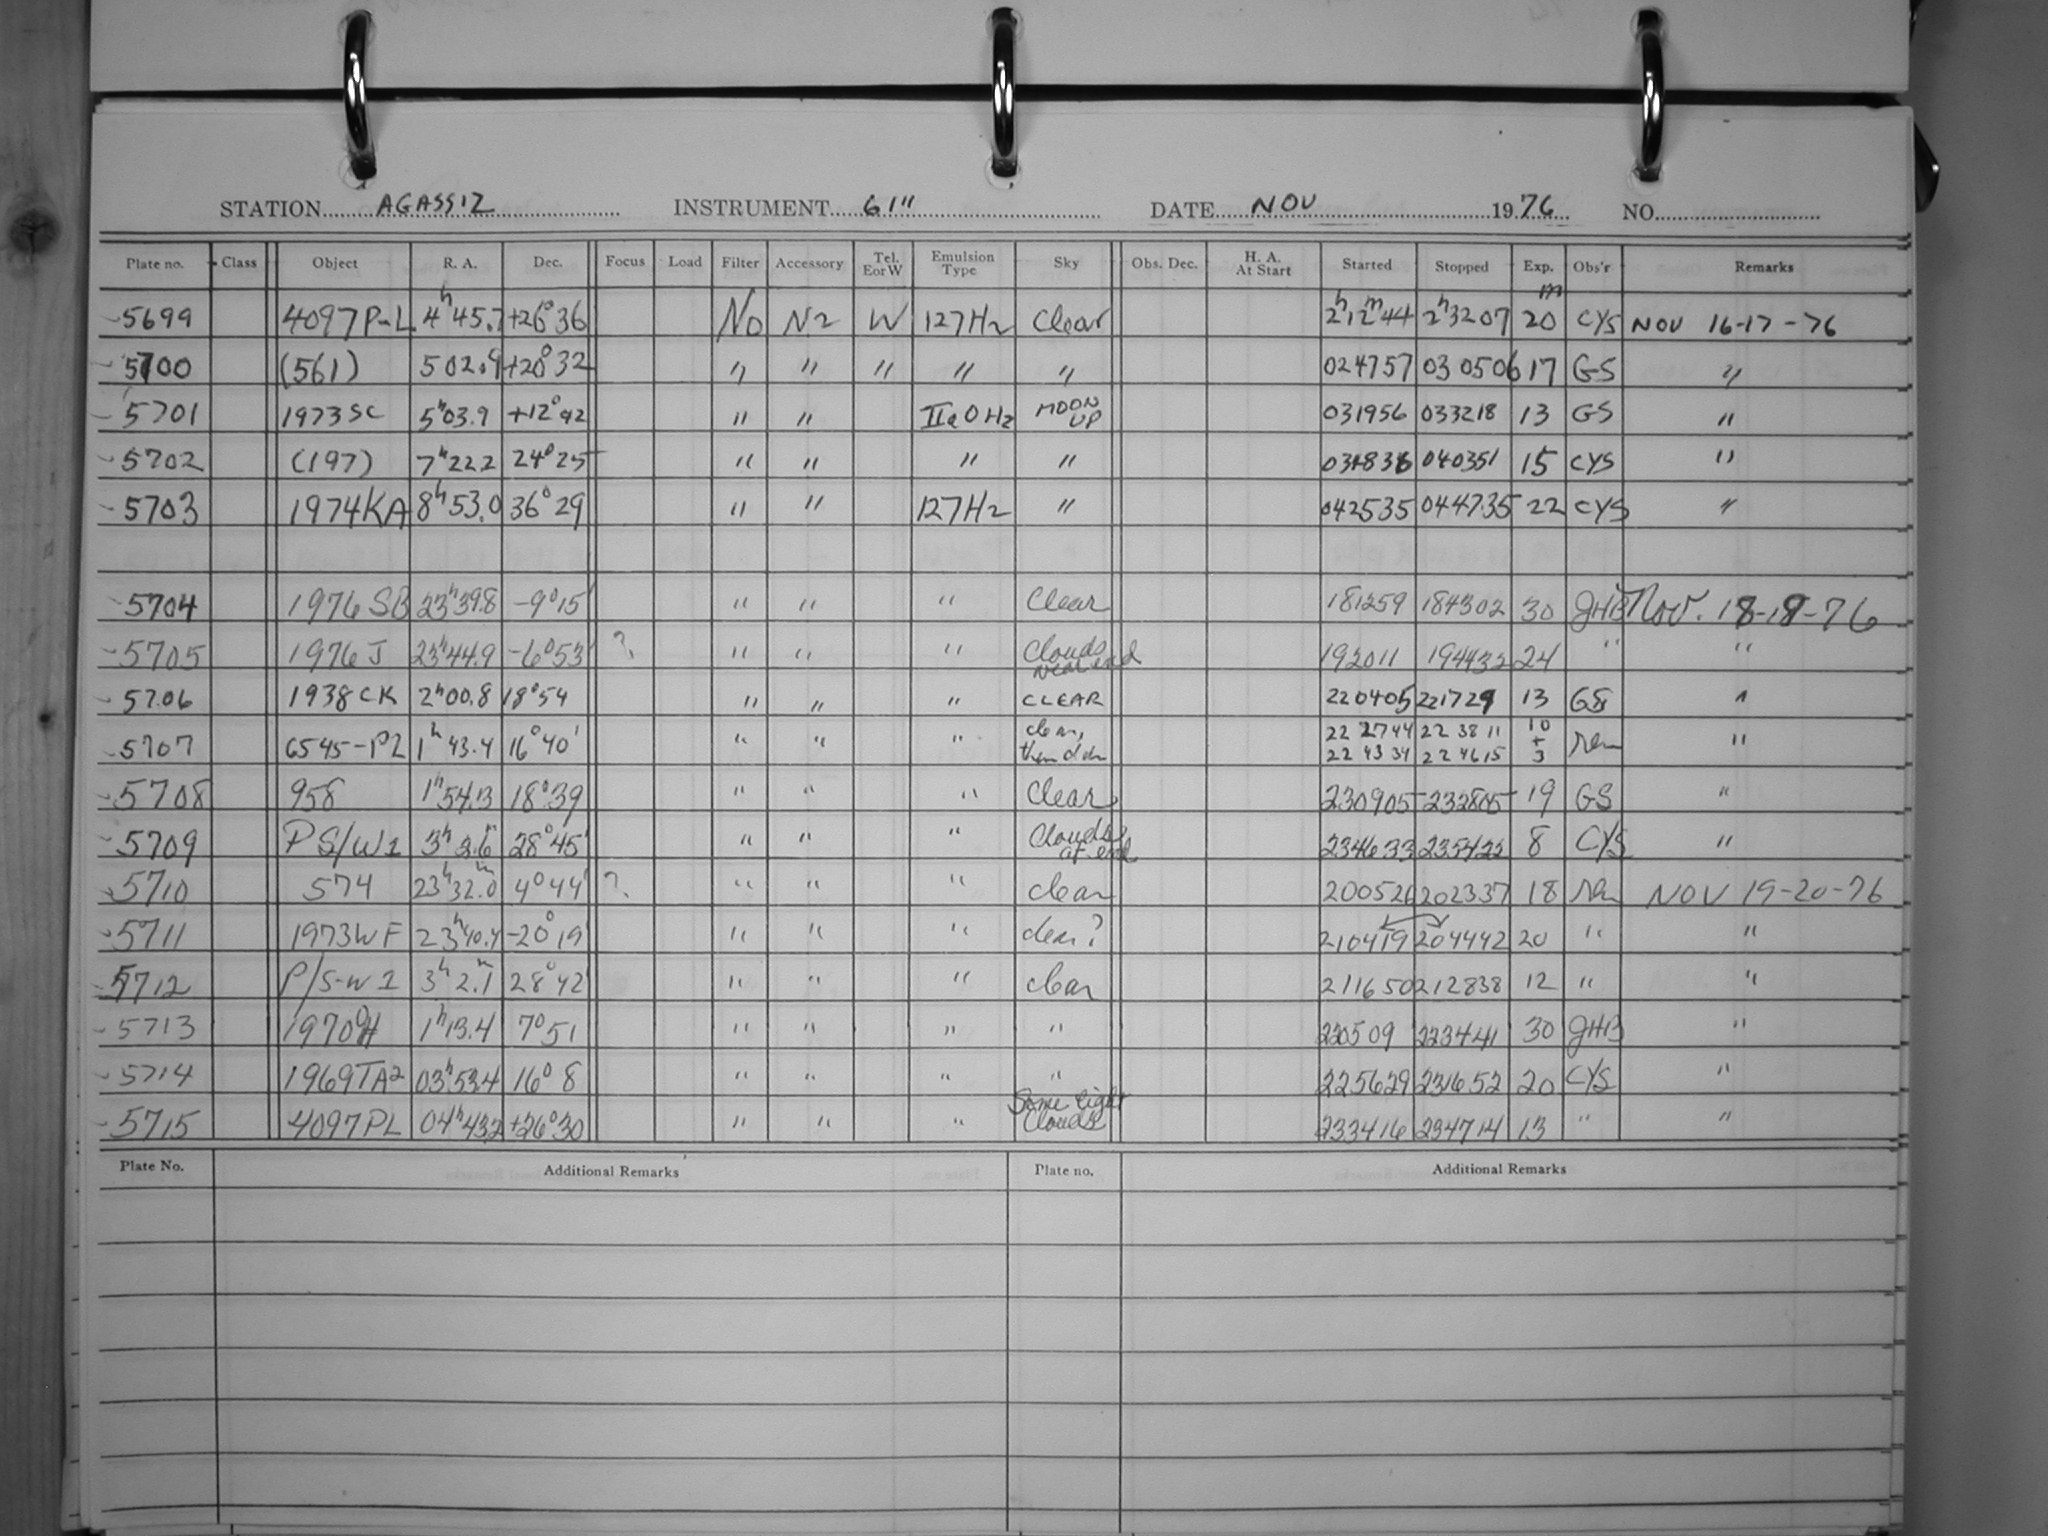 STATION AGASSIZ INSTRUMENT 61" DATE NOV 1976 NO
Plate no. Class Object R. A. Dec. Focus Load Filter Accessory Tel. E or W Emulsion Type Sky Obs. Dec. H. A. At Start Started Stopped Exp. Obs'r Remarks
5699 4097 P-L 4h45.7 +26°36 No N2 W 127Hz Clear 2h12m44 2h3207 20m CYS NOV 16-17-76
5700 (561) 502.9 +20°32 " " " " " 024757 030506 17 GS "
5701 1973 SC 5h03.9 +12°42 " " IIaOHz MOON UP 031956 033218 13 GS "
5702 (197) 7h22.2 24°25 " " " " 040351 15 CYS "
5703 1974KA 8h53.0 36°29 " " 127Hz " 042535 044735 22 CYS "
5704 1976 SB 23h39.8 -9°15' " " " Clear 181259 184302 30 JHB Nov. 18-18-76
5705 1976 J 23h44.9 -6°53' ? " " " Clouds near end 192011 194432 24 " "
5706 1938 CK 2h00.8 18°54 " " " CLEAR 220405 221729 13 GS "
5707 6545-PL 1h43.4 16°40' " " " clear, then dim 222744 223811 10 + rem "
224334 224615 3
5708 958 1h54.13 18°39 " " " Clear 230905 232805 19 GS "
5709 P S/W1 3h 28°45' " " " at end 234633 235422 8 CYS "
5710 574 23h32.0m 4°44' ? " " " clear 200526 202337 18 rem NOV 19-20-76
5711 1973WF 23h40.4 -20°19' " " " clear? 210419 204442 20 " "
5712 P/S-W1 3h2.1m 28°42' " " " clear 211650 212838 12 " "
5713 1970 1h13.4 7°51 " " " " 220509 223441 30 JHB "
5714 1969TA2 03h53.4 16°8 " " " " 225629 231652 20 CYS "
5715 4097PL 04h43.2 +26°30 " " " Some light Clouds 233416 234714 13 " "
Plate No. Additional Remarks Plate no. Additional Remarks